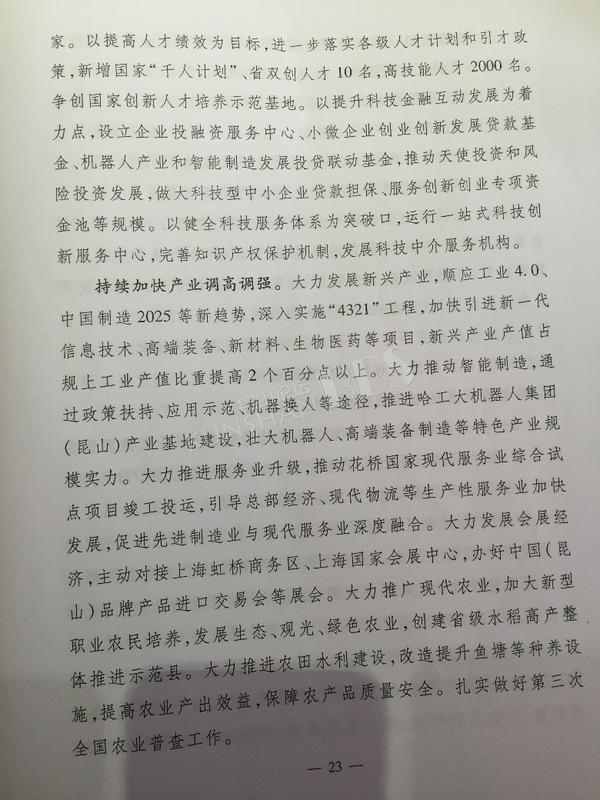 家。以提高人才绩效为目标，进一步落实各级人才计划和引才政
策，新增国家“千人计划”、省双创人才10名，高技能人才2000名。
争创国家创新人才培养示范基地。以提升科技金融互动发展为着
力点，设立企业投融资服务中心、小微企业创业创新发展贷款基
金、机器人产业和智能制造发展投贷联动基金，推动天使投资和风
险投资发展，做大科技型中小企业贷款担保、服务创新创业专项资
金池等规模。以健全科技服务体系为突破口，运行一站式科技创
新服务中心，完善知识产权保护机制，发展科技中介服务机构。
持续加快产业调高调强。大力发展新兴产业，顺应工业4.0、
中国制造2025等新趋势，深入实施“4321”工程，加快引进新一代
信息技术、高端装备、新材料、生物医药等项目，新兴产业产值占
规上工业产值比重提高2个百分点以上。大力推动智能制造，通
过政策扶持、应用示范、机器换人等途径，推进哈工大机器人集团
(昆山)产业基地建设，壮大机器人、高端装备制造等特色产业规
模实力。大力推进服务业升级，推动花桥国家现代服务业综合试
点项目竣工投运，引导总部经济、现代物流等生产性服务业加快
发展，促进先进制造业与现代服务业深度融合。大力发展会展经
济，主动对接上海虹桥商务区、上海国家会展中心，办好中国(昆
山)品牌产品进口交易会等展会。大力推广现代农业，加大新型
职业农民培养，发展生态、观光、绿色农业，创建省级水稻高产整
体推进示范县。大力推进农田水利建设，改造提升鱼塘等种养设
施，提高农业产出效益，保障农产品质量安全。扎实做好第三次
全国农业普查工作。
— 23 —